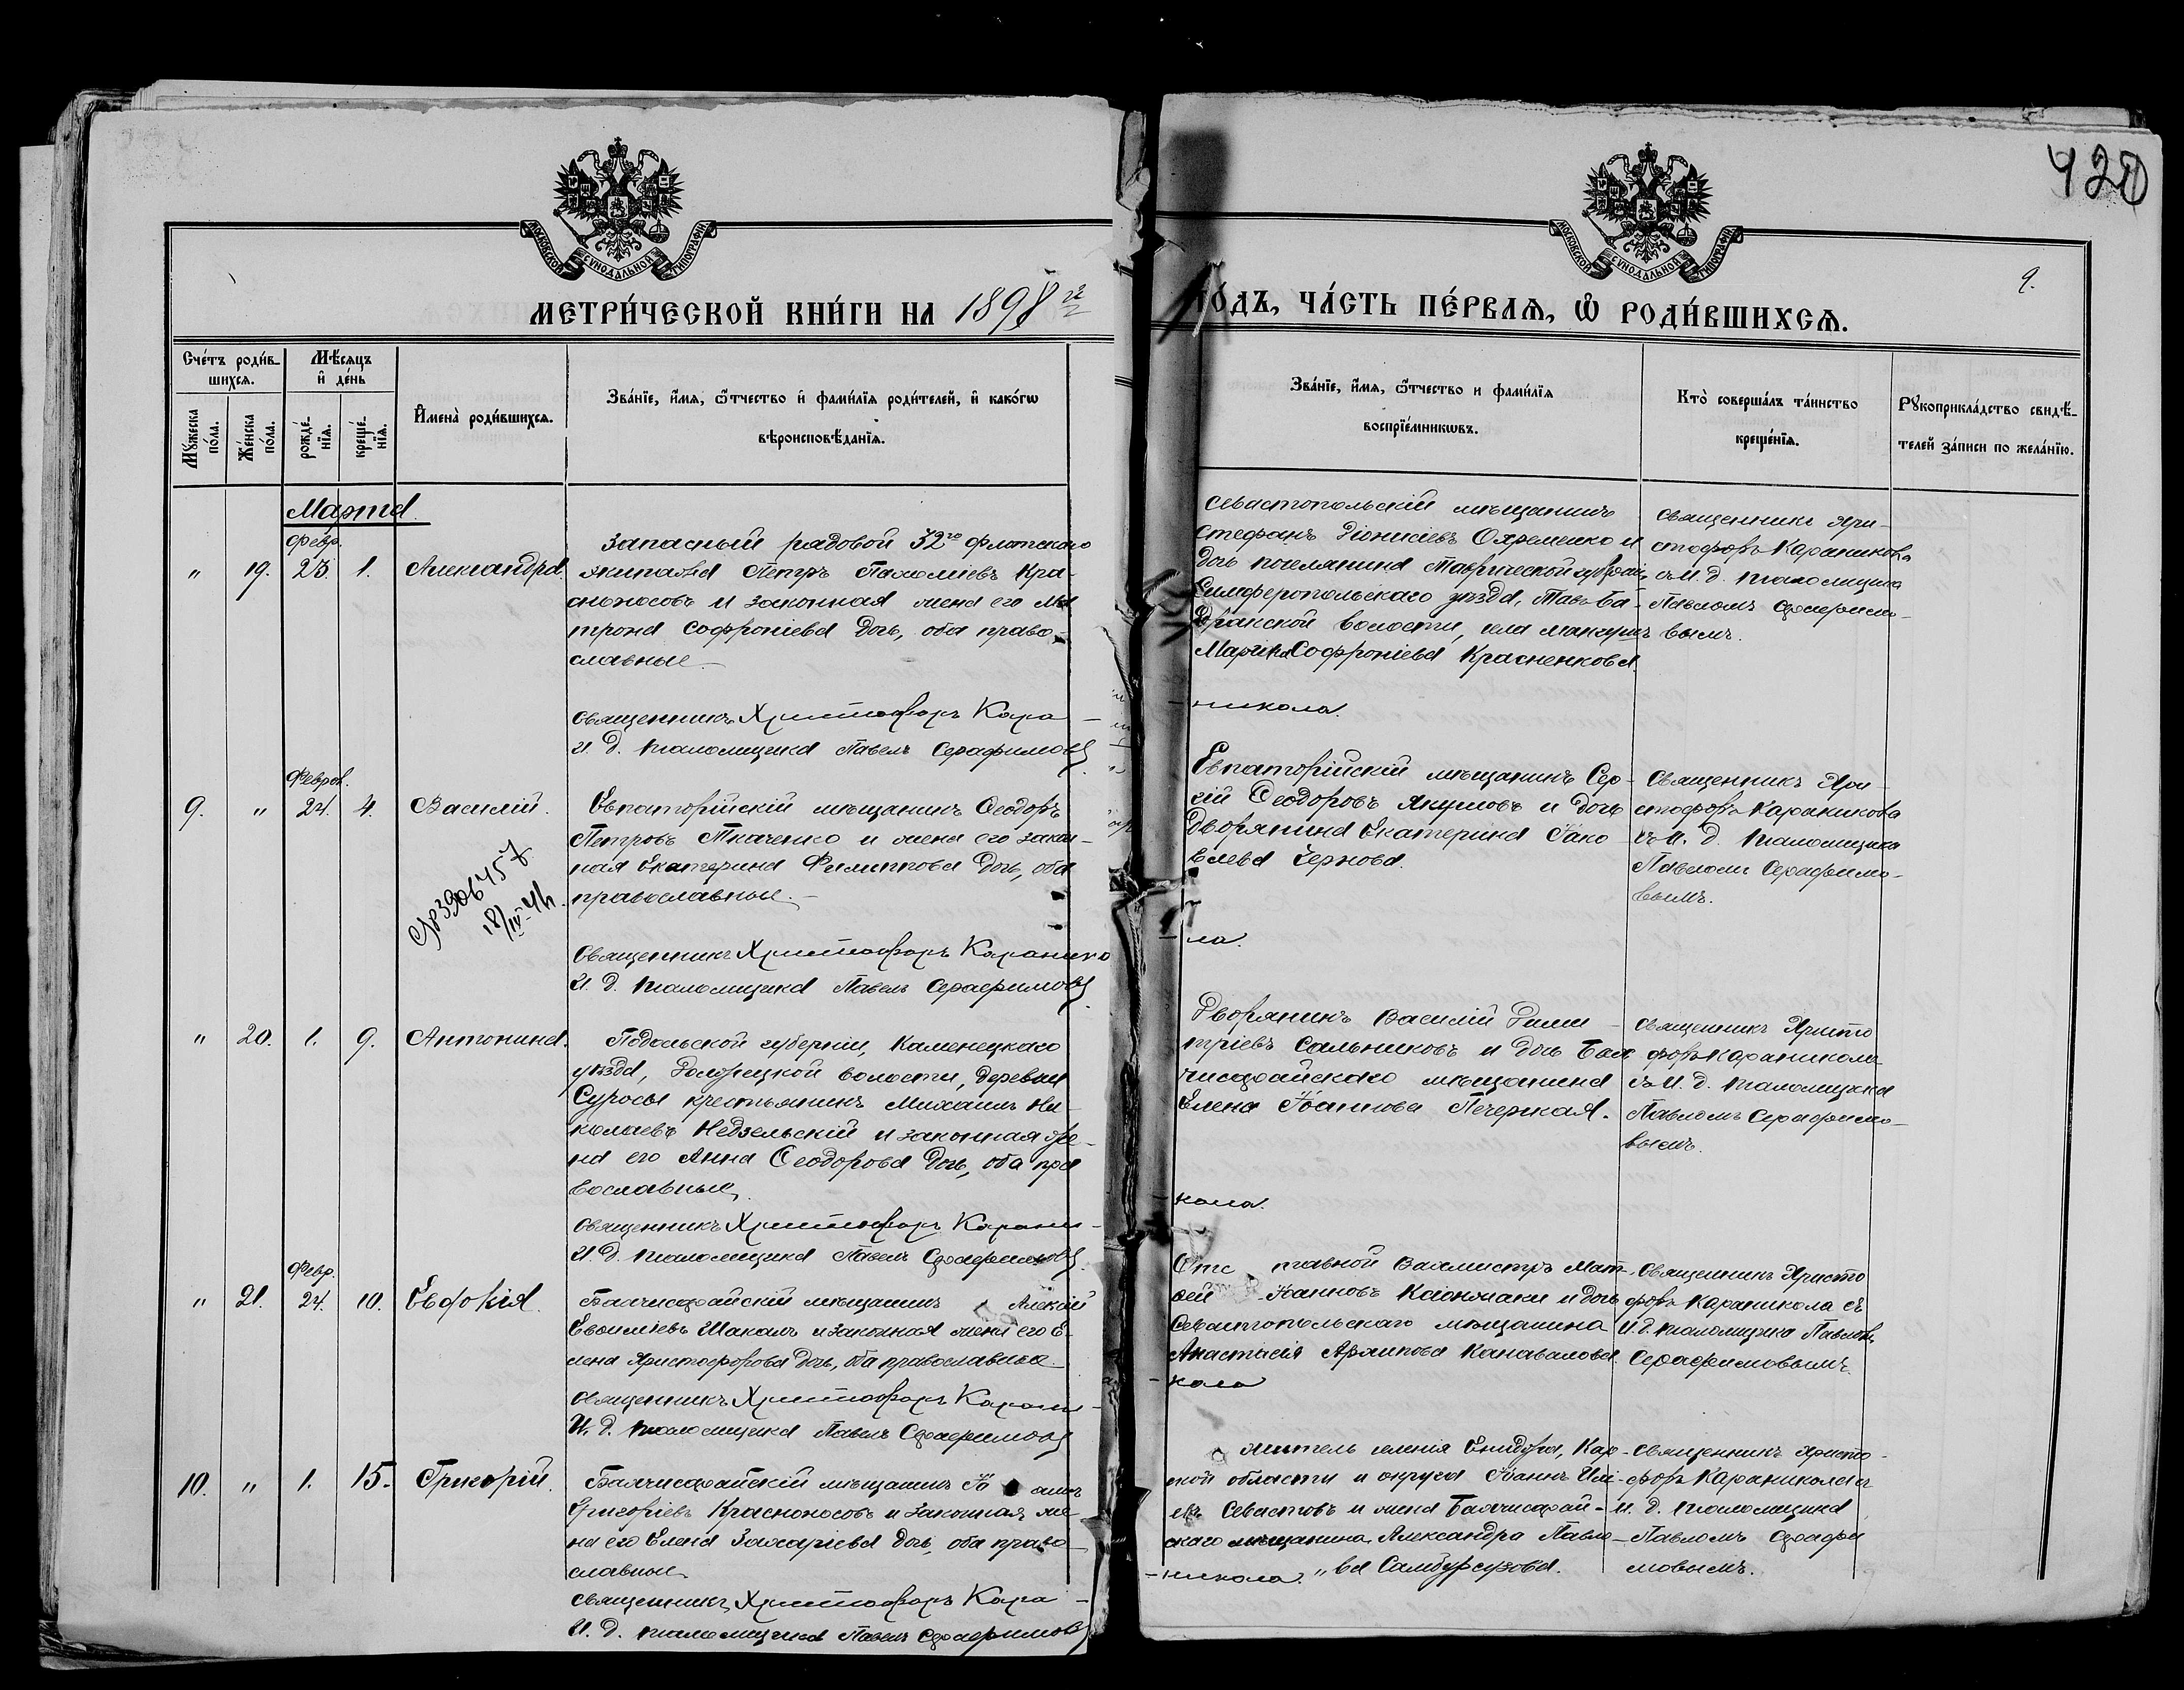 420
9.
МОСКОВСКОЙ СѴНОДАЛЬНОЙ ТИПОГРАФІИ
МОСКОВСКОЙ СѴНОДАЛЬНОЙ ТИПОГРАФІИ
МЕТРИ́ЧЕСКОЙ КНИ́ГИ НА 1898 й
ГО́ДЪ, ЧА́СТЬ ПЕ́РВАЯ, Ѿ РОДИ́ВШИХСЯ.
Сче́тъ роди́в-
шихся.
Мѣ́сяцъ
и҆ де́нь
Мꙋ́жеска
по́ла.
Же́нска
по́ла.
рожде́-
нїя.
креще́-
нїя.
И҆мена̀ роди́вшихся.
Зва́нїе, и҆́мя, ѻ҆́тчество и҆ фами́лїя роди́телей, и҆ како́гѡ
вѣроисповѣ́данїя.
Зва́нїе, и҆́мя, ѻ҆́тчество и фами́лїя
воспрїе́мникѡвъ.
Кто̀ соверша́лъ та́инство
креще́нїя.
Рꙋкоприкла́дство свидѣ́-
телей за́писи по жела́нїю.
Марта
Февр.
" 19. 23. 1. Александра.
Запасный рядовой 32го флотскаго
экипажа Петръ Пахоміевъ Кра-
сноносовъ и законная жена его Ма-
трона Софроніева дочь, оба право-
славные.
Священникъ Христофоръ Кара-
И. д. псаломщика Павелъ Серафимовъ
Севастопольскій мѣщанинъ
Стефанъ Діонисіевъ Охременко и
дочь поселянина Таврической губерніи,
Симферопольскаго уѣзда, Тавъ-Ба-
дракской волости, села Мангушъ
Марія Софроніева Красненкова.
никола.
Священникъ Хри-
стофоръ Караникола
съ И. д. псаломщика
Павломъ Серафимо-
вымъ.
Феврал.
9. " 24. 4. Василій.
Евпаторійскій мѣщанинъ Ѳеодоръ
Петровъ Ткаченко и жена его закон-
ная Екатерина Филиппова дочь, оба
православные.
Священникъ Христофоръ Караник
И. д. псаломщика Павелъ Серафимовъ
Евпаторійскій мѣщанинъ Сер-
гій Ѳеодоровъ Якимовъ и дочь
дворянина Екатерина Іако-
влева Чернова.
ла.
Священникъ Хри-
стофоръ Караникола
съ И. д. псаломщика
Павломъ Серафимо-
вымъ.
" 20. 1. 9. Антонина.
Подольской губерніи, Каменецкаго
уѣзда, волости, деревни
крестьянинъ Михаилъ Ни-
колаевъ Недзельскій и законная же-
на его Анна Ѳеодорова дочь, оба пра
вославные.
Священникъ Христофоръ Карани-
И. д. псаломщика Павелъ Серафимовъ
Дворянинъ Василій Дими-
тріевъ Сальниковъ и дочь Бах-
чисарайскаго мѣщанина
Елена Іоаннова Печерская.
кола.
Священникъ Христо
форъ Караникола
съ И. д. псаломщика
Павломъ Серафимо-
вымъ.
Февр.
" 21. 24. 10. Евдокія.
Бахчисарайскій мѣщанинъ Алексій
Евѳиміевъ Шакалъ и законная жена его Е-
лена Христофорова дочь, оба православные.
Священникъ Христофоръ Карани-
И. д. псаломщика Павелъ Серафимовъ
Отставной Вахмистръ Мат-
ѳей Іоанновъ и дочь
Севастопольскаго мѣщанина
Анастасія Архипова Канавалова.
кола
Священникъ Христо
форъ Караникола съ
И. д. псаломщика Павломъ
Серафимовымъ.
10. " 1. 15. Григорій.
Бахчисарайскій мѣщанинъ Іоаннъ
Григоріевъ Красноносовъ и законная же-
на его Елена Захаріева дочь, оба право-
славные
Священникъ Христофоръ Кара-
И. д. псаломщика Павелъ Серафимовъ
житель селенія Кар-
ской области и округа Іоаннъ Илі-
евъ Севастовъ и жена Бахчисарай-
скаго мѣщанина Александра Павло-
ва Самбурузова.
никола.
Священникъ Христо-
форъ Караникола съ
И. д. псаломщика
Павломъ Серафи
мовымъ.
18/IV-41